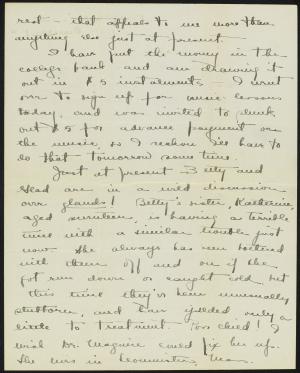 rest - that appeals to me more than
anything else just at present.
I have put the money in the
college bank and am drawing it
out in $5 instalments. I went
over to sign up for music lessons
today, and was invited to plunk
out $5 for advance payment on
the music, so I reckon I'll have to
do that tomorrow sometime.
Just at present Betty and
Glad are in a wild discussion
over glands! Betty's sister, Katherine,
aged seventeen, is having a terrible
time with a similar trouble just
now. She always has been bothered
with them off and on if she
got run down or caught cold, but
this time they've been unusually
stubborn, and have yielded only a
little to treatment. Poor child! I
wish Dr. Maguire could fix her up.
She lives in Leominster, Mass.